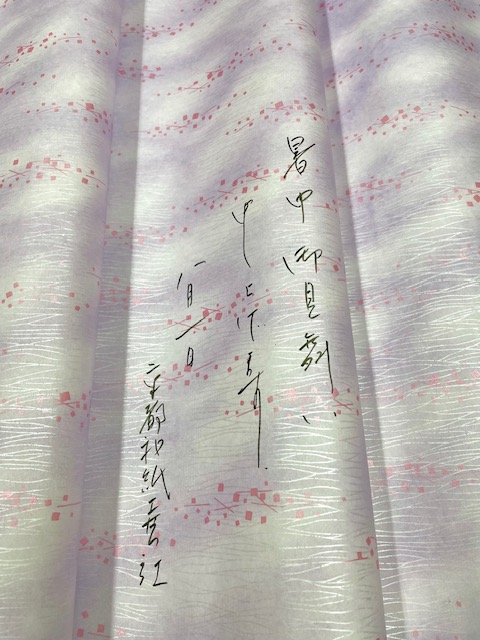 暑中御見舞い
申し上げます
八月一日
京都和紙工芸社